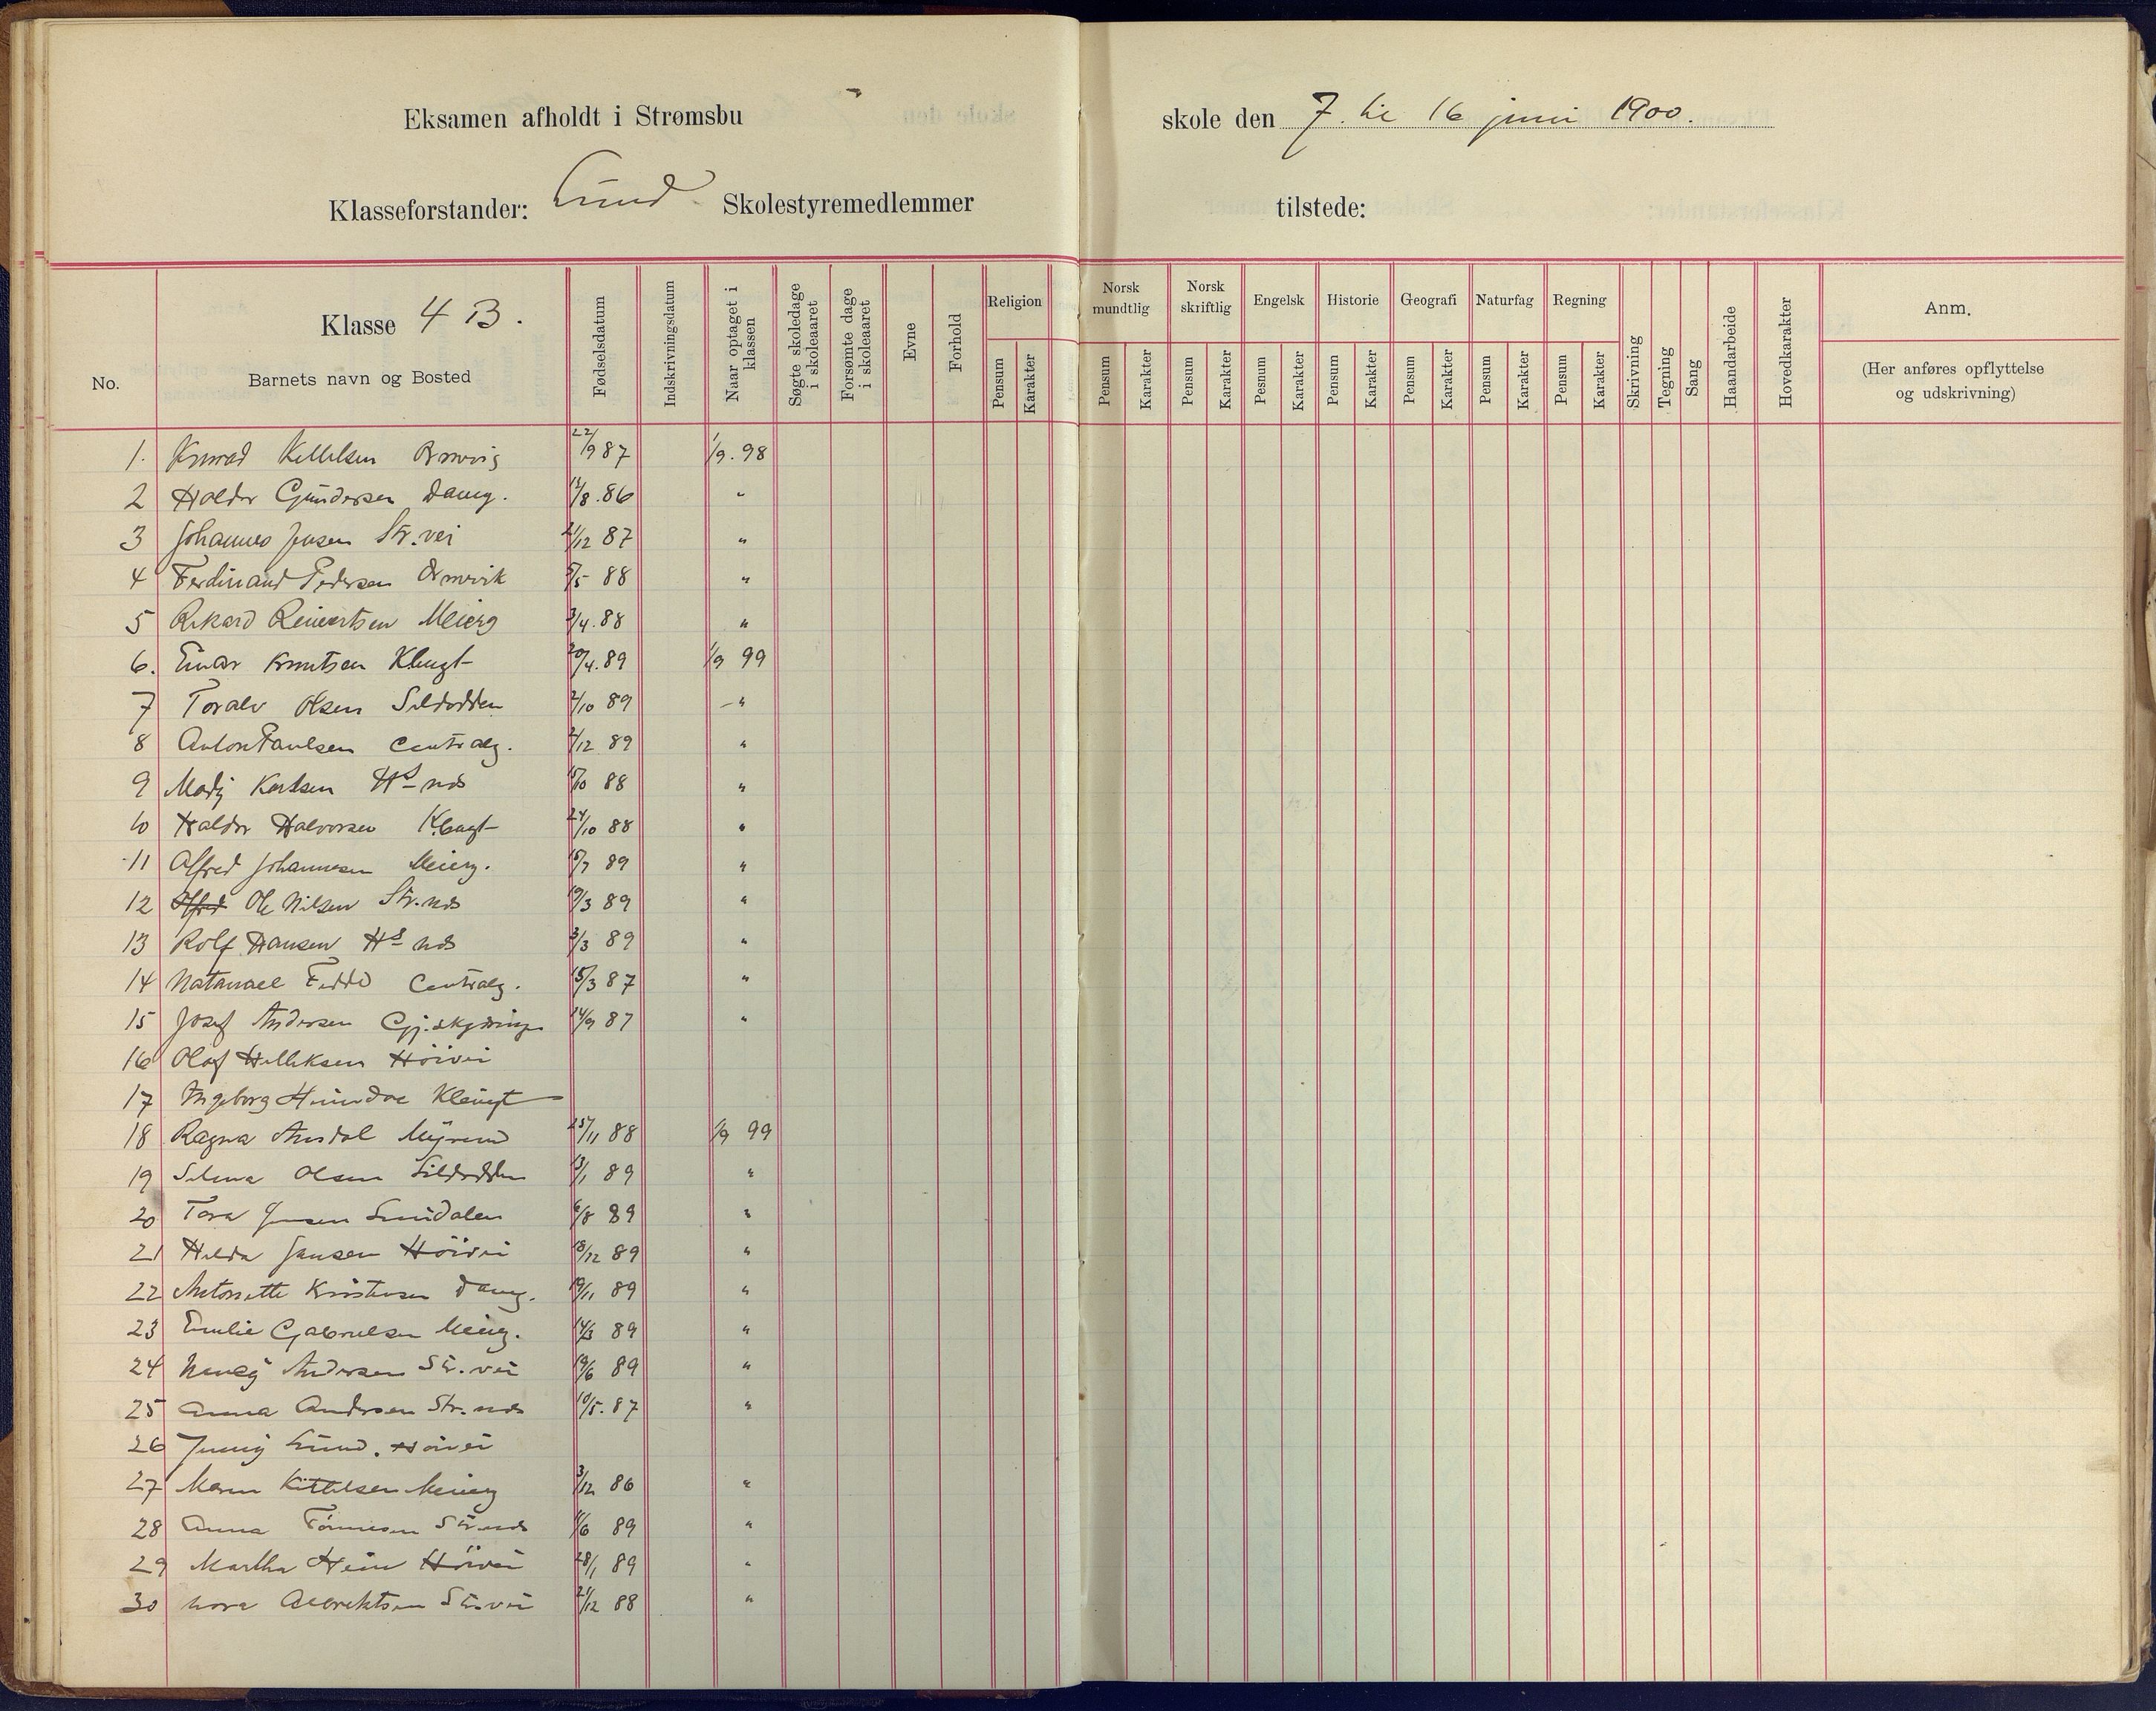 Eksamen afholdt i Strømsbu skole den 7. til 16 juni 1900.
Klasseforstander: Lund Skolestyremedlemmer tilstede:
No.
Klasse 4 B.
Barnets navn og Bosted
Fødselsdatum
Indskrivningsdatum
Naar optaget i klassen
Søgte skoledage i skoleaaret
Forsømte dage i skoleaaret
Evne
Forhold
Religion
Pensum Karakter
Norsk mundtlig
Pensum Karakter
Norsk skriftlig
Pensum Karakter
Engelsk
Pesnum Karakter
Historie
Pensum Karakter
Geografi
Pensum Karakter
Naturfag
Pensum Karakter
Regning
Pensum Karakter
Skrivning
Tegning
Sang
Haandarbeide
Hovedkarakter
Anm.
(Her anføres opflyttelse og udskrivning)
1. Konrad Kittelsen 22/9 87 1/9. 98
2 Haldor Gundersen Damg. /8. 86 "
3 Johannes Jensen Str. vei 21/12 87 "
4 Ferdinand Pedersen Ormvik 5/5 88 "
5 Rikard Reiertsen Meierg 3/4. 88 "
6. Einar Knutsen Klengt 20/4. 89 1/9 99
7 Toralv Olsen Sildodden 2/10 89 "
8 Anton Paulsen Centralg. 2/12 89 "
9 Karlsen Hs nds 15/10 88 "
10 Haldor Halvorsen Klengt 24/10 88 "
11 Alfred Johannesen Meierg. 15/7 89 "
12 Alfred Ole Nilsen Str. nds 19/3 89 "
13 Rolf Hansen Hs nds 3/3 89 "
14 Natanael Fedde Centralg. 15/3 87 "
15 Josef Andersen 14/9 87 "
16 Olaf Høivei
17 Ingeborg Klengt
18 Ragna Myrene 25/11 88 1/9 99
19 Selma Olsen Sildodden 13/1 89 "
20 Tora Jensen 6/8 89 "
21 Hilda Jansen Høivei 18/12 89 "
22 Antonette Kristensen Damg. 19/11 89 "
23 Emilie Gabrielsen Meierg. 14/3 89 "
24 Nancy Andersen Str. vei 19/6 89 "
25 Anna Andersen Str. nds 10/5. 87 "
26 Jenny Lund. Høivei
27 Maren Kittelsen Meierg 3/12 86 "
28 Anna Tønnesen Str. nds /6 89 "
29 Martha Høivei 28/1 89 "
30 Nora Albrektsen Str. vei 21/12 88 "